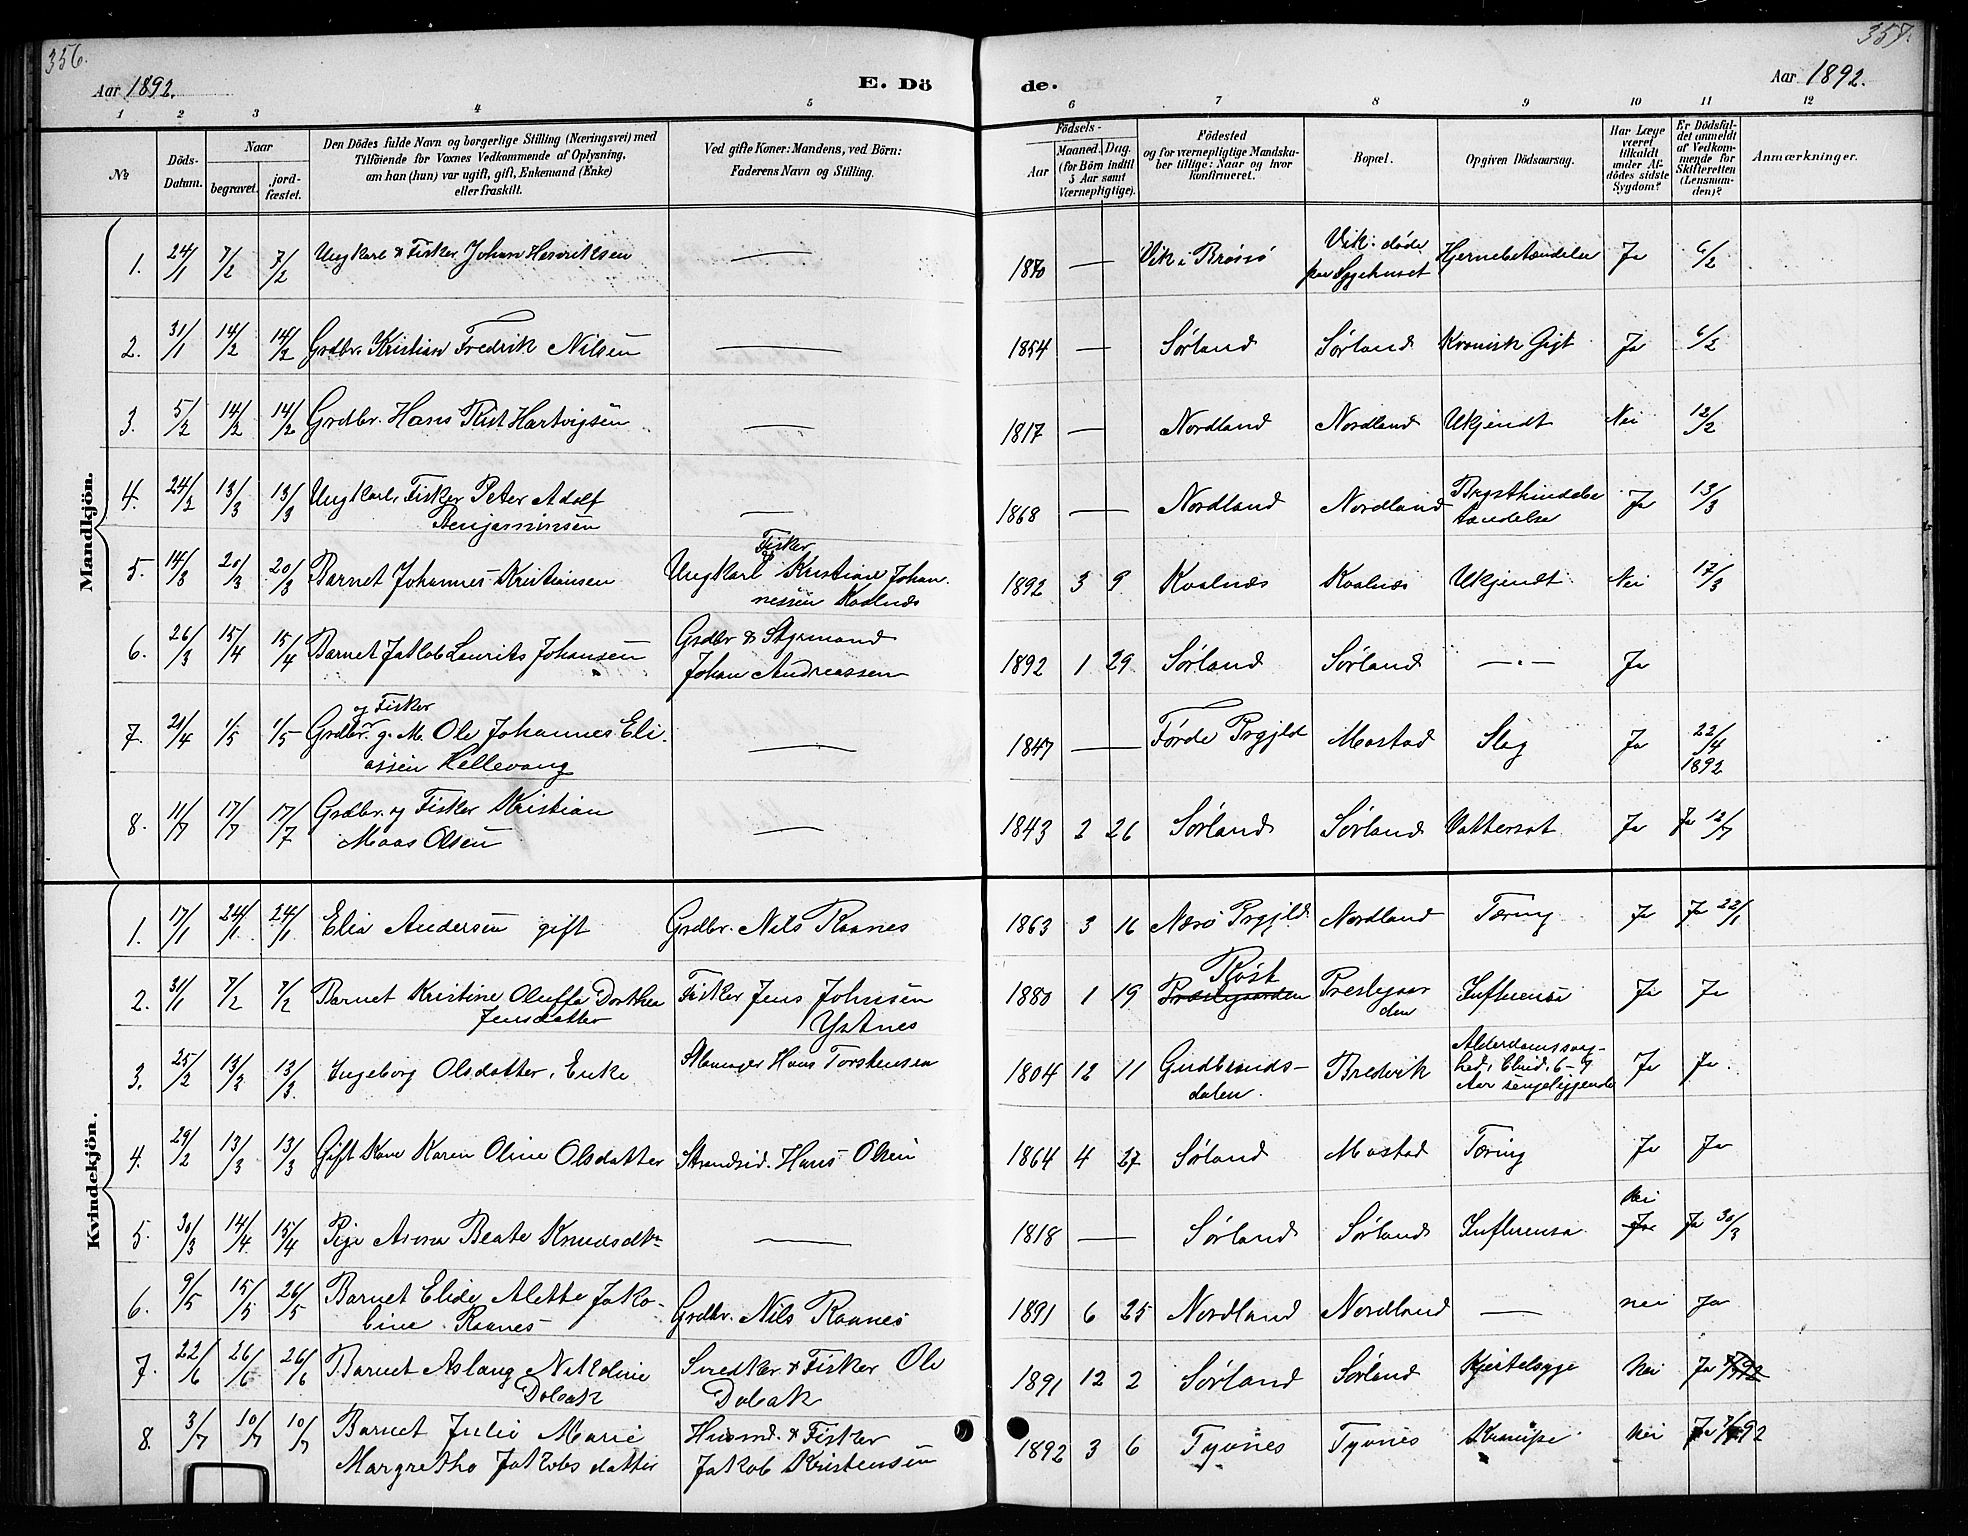 356.
357.
Aar 1892.
E. Dö
de.
Aar 1892.
1 2 3 4 5 6 7 8 9 10 11 12
No
Döds-Datum.
Naar
begravet.
jord-fæstet.
Den Dödes fulde Navn og borgerlige Stilling (Næringsvei) med
Tilföiende for Voxnes Vedkommende af Oplysning,
om han (hun) var ugift, gift, Enkemand (Enke)
eller fraskilt.
Ved gifte Koner: Mandens, ved Börn:
Faderens Navn og Stilling.
Födsels-
Aar
Maaned. Dag.
(for Börn indtil
5 Aar samt
Værnepligtige).
Födested
og for værnepligtige Mandska-
ber tillige: Naar og hvor
konfirmeret.
Bopæl.
Opgiven Dödsaarsag.
Har Læge
været
tilkaldt
under Af-
dödes sidste
Sygdom?
Er Dödsfal-
det anmeldt
af Vedkom-
mende for
Skifteretten
(Lensman-
den)?
Anmærkninger.
Mandkjön.
1. 24/1 7/2 7/2 Ungkarl & Fisker Johan Henriksen — 1870 — Vik i Brønø Vik. døde paa Sygehuset Hjernebetændelse Ja 6/2
2. 31/1 14/2 14/2 Grdbr. Kristian Fredrik Nilsen — 1854 — Sørland Sørland Kronisk Gigt Ja 6/2
3. 5/2 14/2 14/2 Grdbr. Hans Rist Hartvigsen — 1817 — Nordland Nordland Ukjendt Nei 12/2
4. 24/2 13/3 13/3 Ungkarl, Fisker Peter Adolf
Benjaminsen — 1868 — Nordland Nordland Brysthindebe
tændelse Ja 13/3
5. 14/3 20/3 20/3 Barnet Johannes Kristiansen Ungkarl Fisker Kristian Johan-
nessen Kvalnæs 1892 3 9 Kvalnæs Kvalnæs Ukjendt Nei 17/3
6. 26/3 15/4 15/4 Barnet Jakob Laurits Johansen Grdbr & Styrmand
Johan Andreassen 1892 1 29 Sørland Sørland —"— Ja
7. 21/4 1/5 1/5 Grdbr. og Fisker g. M. Ole Johannes Eli-
assen Hellevang — 1847 — Førde Prgjld Mostad Slag Ja 22/4
1892
8. 11/7 17/7 17/7 Grdbr. og Fisker Kristian
Maas Olsen — 1843 2 26 Sørland Sørland Vattersot Ja Ja 12/7
Kvindekjön.
1. 17/1 24/1 24/1 Elia Andersen gift Grdbr. Nils Raanes 1863 3 16 Nærø Prgjld. Nordland Tæring Ja Ja 22/1
2. 31/1 7/2 7/2 Barnet Kristine Oluffa Dorthea
Jensdatter Fisker Jens Johnsen
Ystnes 1880 1 19 Røst
Præstgaarden Prestgaar
den Influensa Ja Ja
3. 25/2 13/3 13/3 Ingeborg Olsdatter, Enke Hans Torstensen 1804 12 11 Gudbrands-
dalen. Bredvik Alderdomssvag-
hed, 6-7
Aar sengeliggende Ja Ja.
4. 29/2 13/3 13/3 Gift Kone Karen Oline Olsdatter Strandsid. Hans Olsen 1864 4 27 Sørland Mostad Tæring Ja Ja
5. 30/3 14/4 15/4 Pige Anna Beate Knudsdtr — 1818 — Sørland Sørland Influensa Nei
Ja Ja 30/3
6. 9/5 15/5 26/5 Barnet Elide Alette Jako-
bine Raanes Grdbr. Nils Raanes 1891 6 25 Nordland Nordland — nei Ja
7. 22/6 26/6 26/6 Barnet Aslaug Nikoline
Dolbak Snedker & Fisker Ole
Dolbak 1891 12 2 Sørland Sørland Kjertelsyge Nei Ja
8. 3/7 10/7 10/7 Barnet Julie Marie
Margrethe Jakobsdatter Husmd. & Fisker
Jakob Kristensen 1892 3 6 Tyvnes Tyvnes Krampe Nei Ja